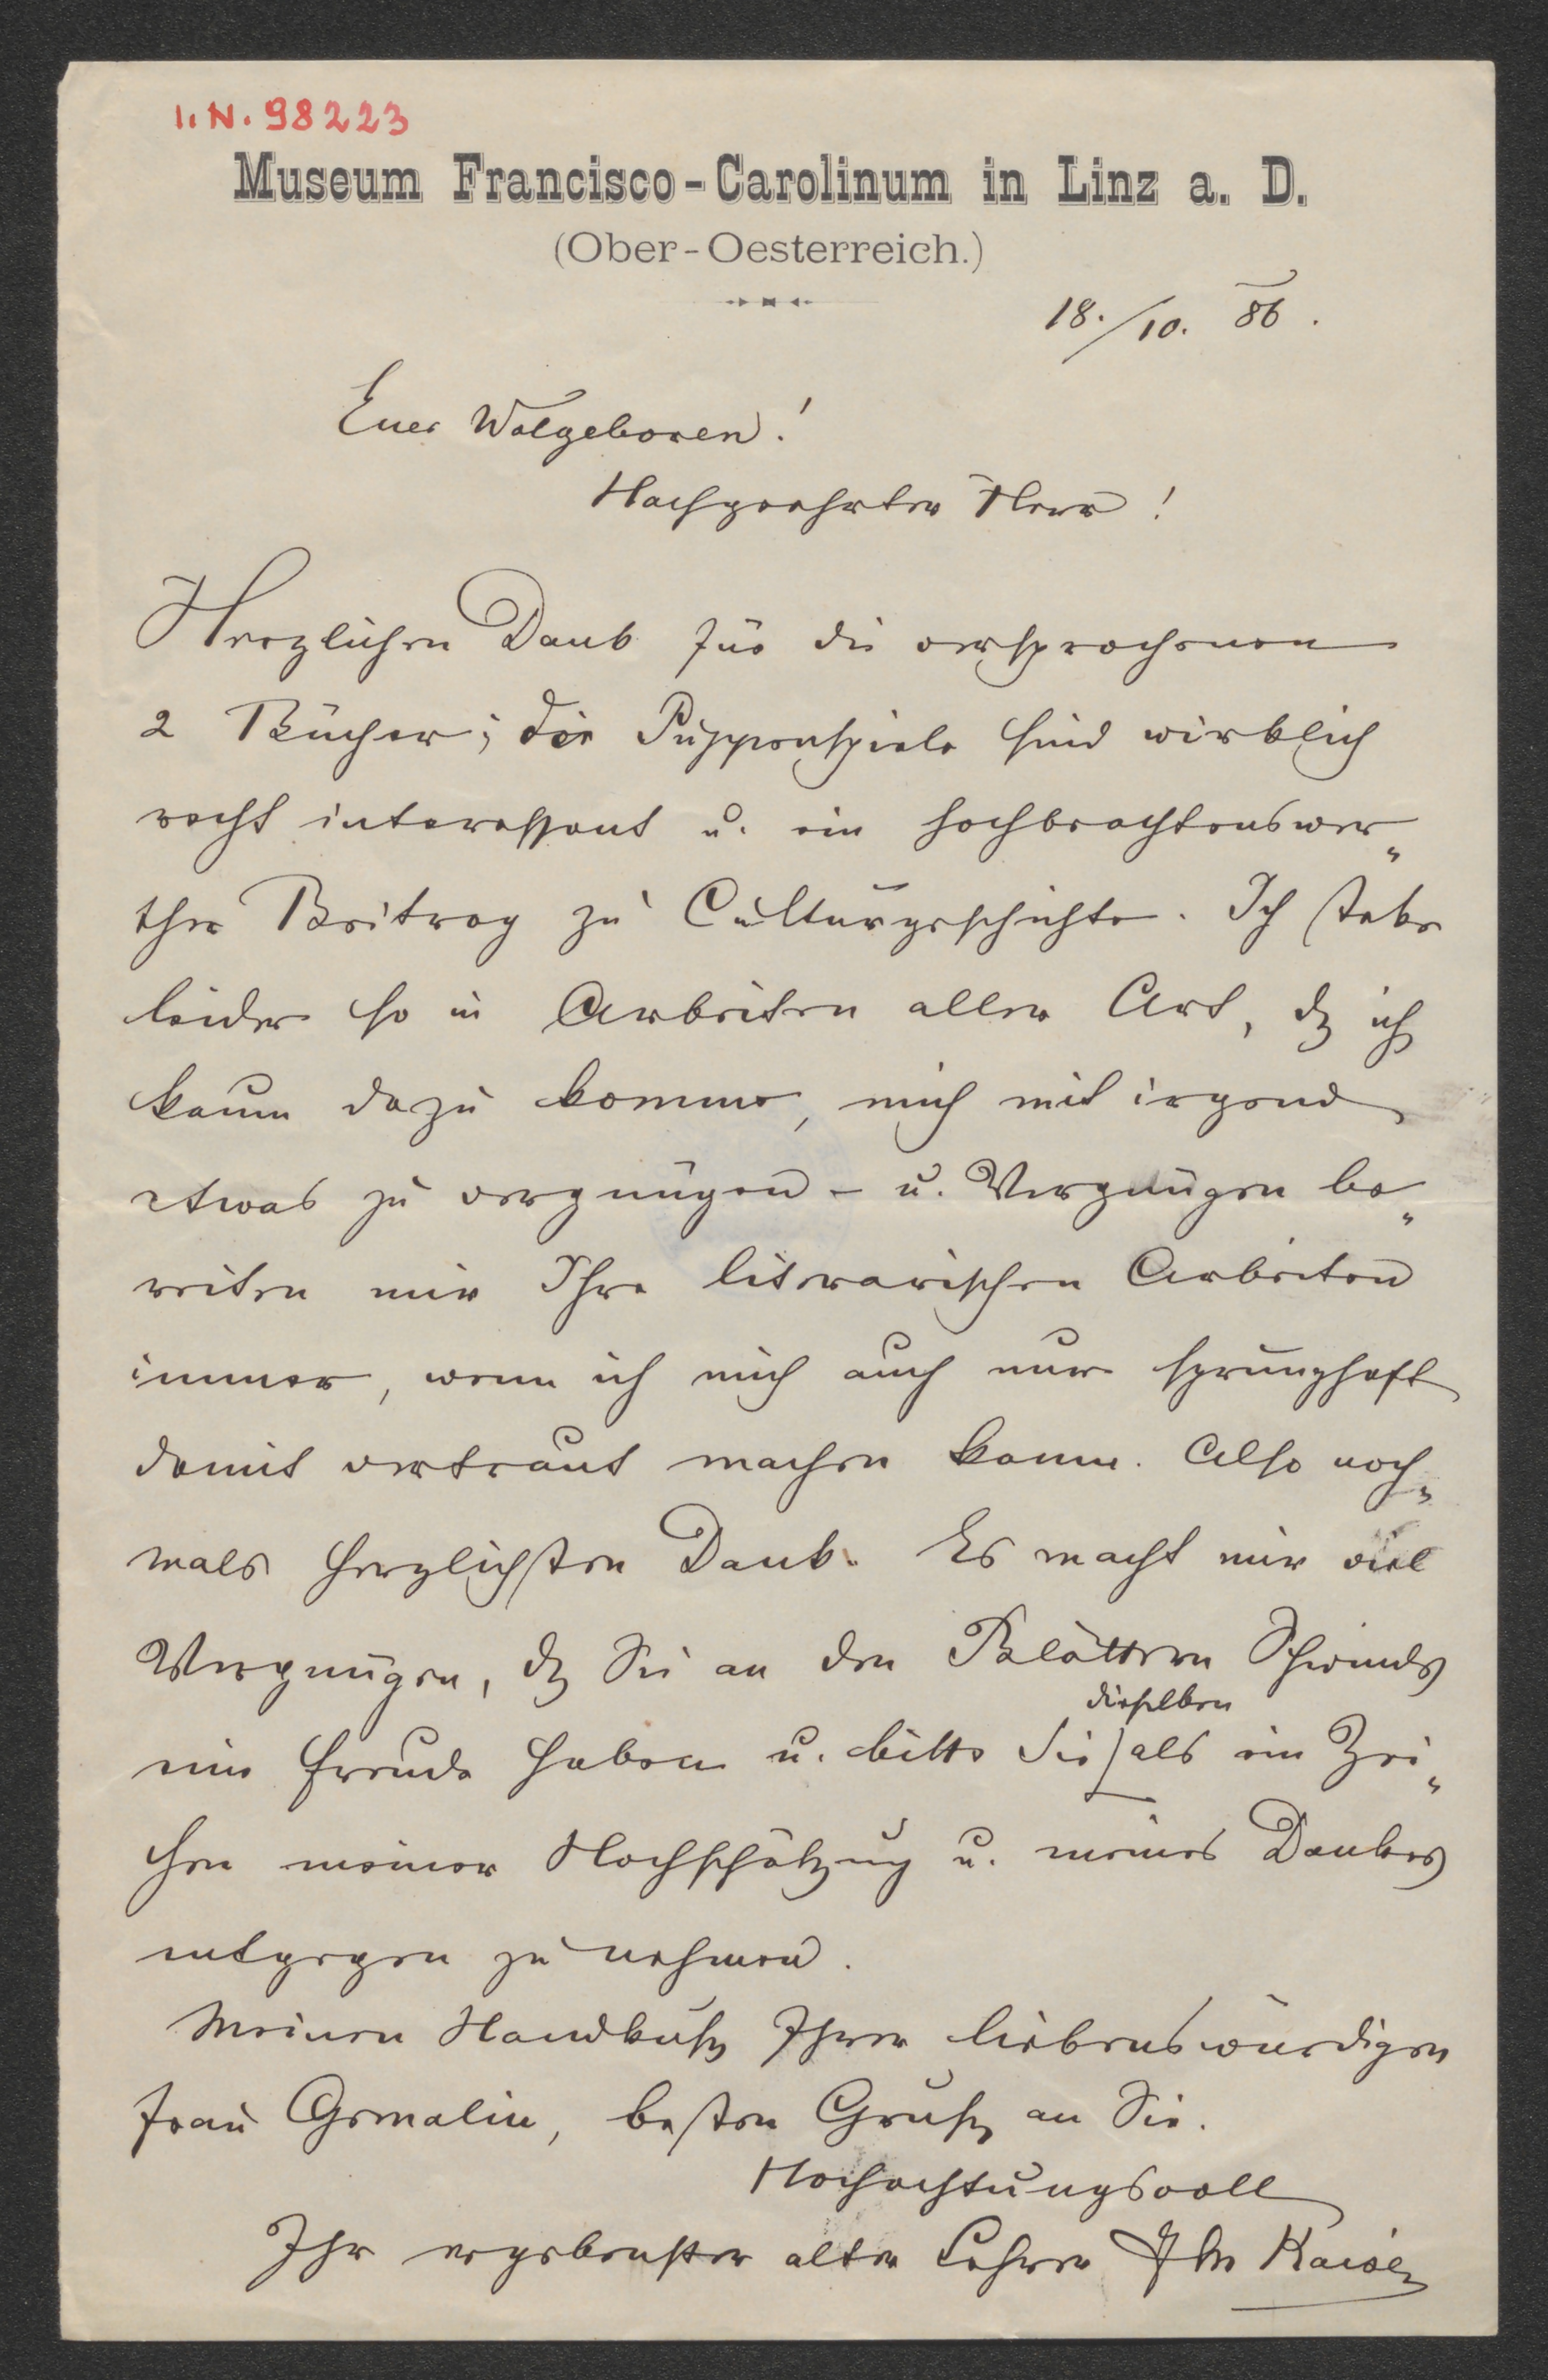 I. N. 98223
Museum Francisco-Carolinum in Linz a. D.
(Ober-Oesterreich.)
18./10. 86.
Euer Wolgeboren!
Hochgeehrter Herr!
Herzlichen Dank für die versprochenen
2 Bücher; die Puppenspiele sind wirklich
recht interessant u. ein hochbeachtenswer„
ther Beitrag zu Culturgeschichte. Ich stebe
leider so in Arbeiten aller Art, dß ich
kaum dazu komme, mich mit irgend
etwas zu vergnügen – u. Vergnügen be„
reiten mir Ihre literarischen Arbeiten
immer, wenn ich mich auch nur sprunghaft
damit vertraut machen kann. Also noch„
mals herzlichsten Dank. Es macht mir viel
Vergnügen, dß Sie an den Blättern Schwinds
eine Freude haben u. bitte Sie dieselben als ein Zei„
chen meiner Hochschätzung u. meines Dankes
entgegen zu nehmen.
Meinen Handkuß Ihrer liebenswürdigen
Frau Gemalin, besten Gruß an Sie.
Hochachtungsvoll
Ihr ergebenster alter Lehrer Kaiser